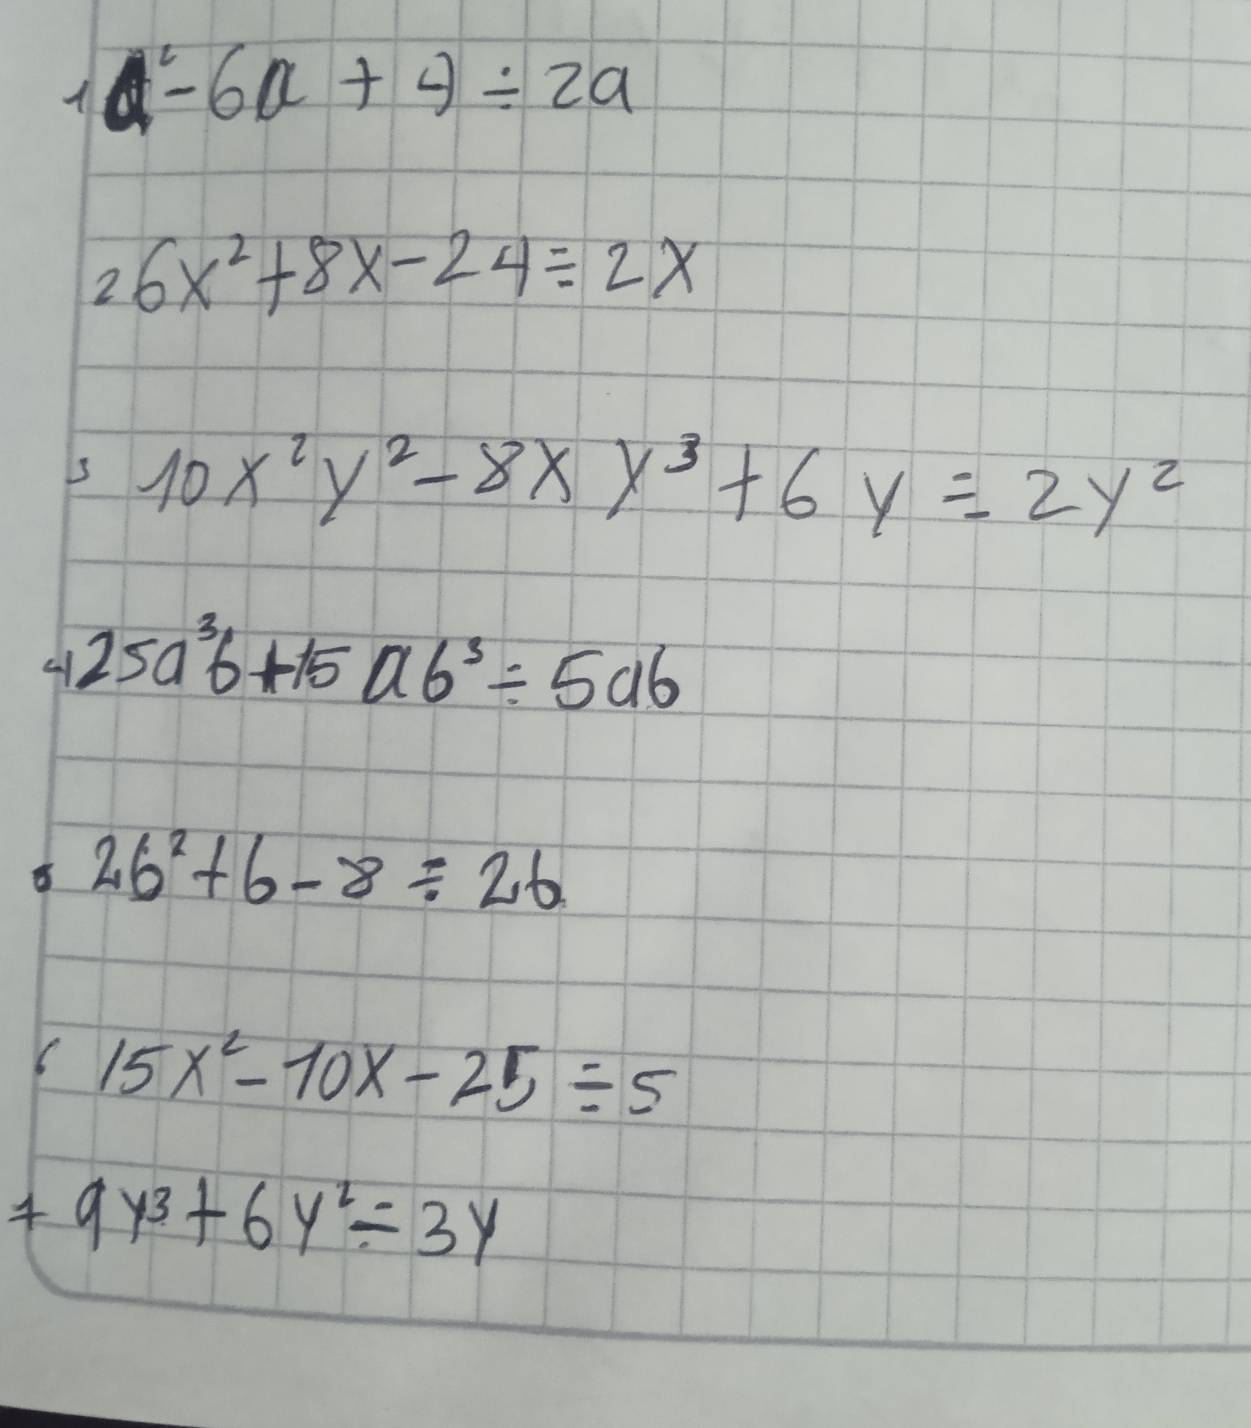 1 a² - 6a + 4 ÷ 2a
2 6x² + 8x - 24 ÷ 2x
3 10x²y² - 8xy³ + 6y ÷ 2y²
4 25a³b + 15ab³ ÷ 5ab
5 2b² + b - 8 ÷ 2b
6 15x² - 10x - 25 ÷ 5
7 9y³ + 6y² ÷ 3y